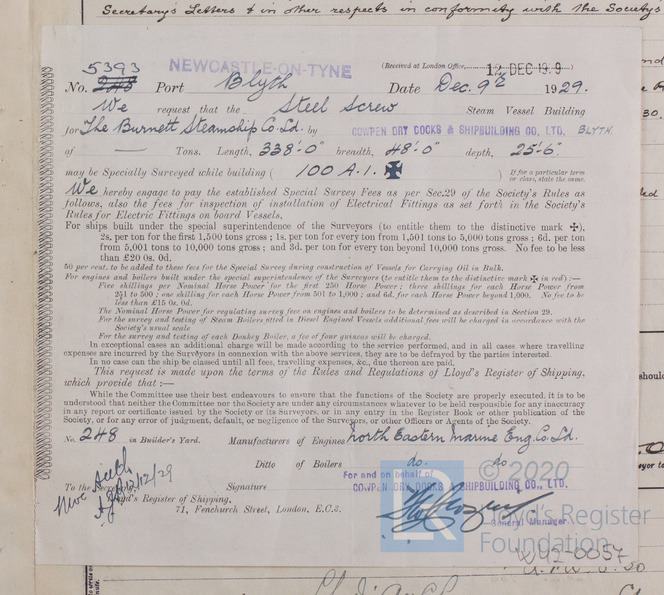 Secretary's Letters & in other respects in conformity with the Society's
5393
NEWCASTLE-ON-TYNE
(Received at London Office, 12 DEC 1929)
No. 248 Port Blyth Date Dec. 9th 1929.
We request that the Steel Screw Steam Vessel Building
for The Burnett Steamship Co. Ld. by COWPEN DRY DOCKS & SHIPBUILDING CO., LTD. BLYTH.
of — Tons. Length, 338'-0" breadth, 48'-0" depth, 25'-6"
may be Specially Surveyed while building ( 100 A.1. ✠ ) If for a particular term
or class, state the same.
We hereby engage to pay the established Special Survey Fees as per Sec.29 of the Society's Rules as
follows, also the fees for inspection of installation of Electrical Fittings as set forth in the Society's
Rules for Electric Fittings on board Vessels,
For ships built under the special superintendence of the Surveyors (to entitle them to the distinctive mark ✠),
2s. per ton for the first 1,500 tons gross; 1s. per ton for every ton from 1,501 to 5,000 tons gross; 6d. per ton
from 5,001 to 10,000 tons gross; and 3d. per ton for every ton beyond 10,000 gross. No fee to be less
than £20 0s. 0d.
50 per cent. to be added to these fees for the Special Survey during construction of Vessels for Carrying Oil in Bulk.
For engines and boilers built under the special superintendence of the Surveyors (to entitle them to the distinctive mark ✠ in red) :—
Five shillings per Nominal Horse Power for the first 250 Horse Power; three shillings for each Horse Power from
251 to 500; one shilling for each Horse Power from 501 to 1,000; and 6d. for each Horse Power beyond 1,000. No fee to be
less than £15 0s. 0d.
The Nominal Horse Power for regulating survey fee on engines and boilers to be determined as described in Section 29.
For the survey and testing of Steam Boilers fitted in Diesel Engined Vessels additional fees will be charged in accordance with the
Society's usual scale
For the survey and testing of each Donkey Boiler, a fee of four guineas will be charged.
In exceptional cases an additional charge will be made according to the service performed, and in all cases where travelling
expenses are incurred by the Surveyors in connection with the above services, they are to be defrayed by the parties interested.
In no case can the ship be classed until all fees, travelling expenses, &c., due thereon are paid.
This request is made upon the terms of the Rules and Regulations of Lloyd's Register of Shipping,
which provide that :—
While the Committee use their best endeavours to ensure that the functions of the Society are properly executed, it is to be
understood that neither the Committee nor the Society are under any circumstances whatever to be held responsible for any inaccuracy
in any report or certificate issued by the Society or its Surveyors, or in any entry in the Register Book or other publication of the
Society, or for any error of judgment, default, or negligence of the Surveyors, or other Officers or Agents of the Society.
No. 248 in Builder's Yard. Manufacturers of Engines North Eastern Marine Eng. Co. Ld.
Ditto of Boilers do. do.
For and on behalf of
COWPEN DRY DOCKS & SHIPBUILDING CO., LTD.
Signature
General Manager.
12/12/29
To the
Lloyd's Register of Shipping,
71, Fenchurch Street, London, E.C.3.
© 2020
Lloyd's Register
Foundation
W42-0057